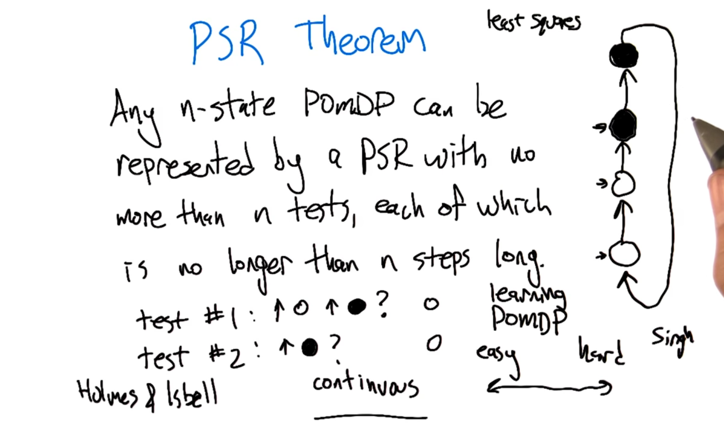 PSR Theorem
least squares
Any n-state POMDP can be
represented by a PSR with no
more than n tests, each of which
is no longer than n steps long.
test #1: ↑ ○ ↑ ● ? ○
test #2: ↑ ● ? ○
learning
POMDP
easy hard
Singh
Holmes & Isbell
continuous